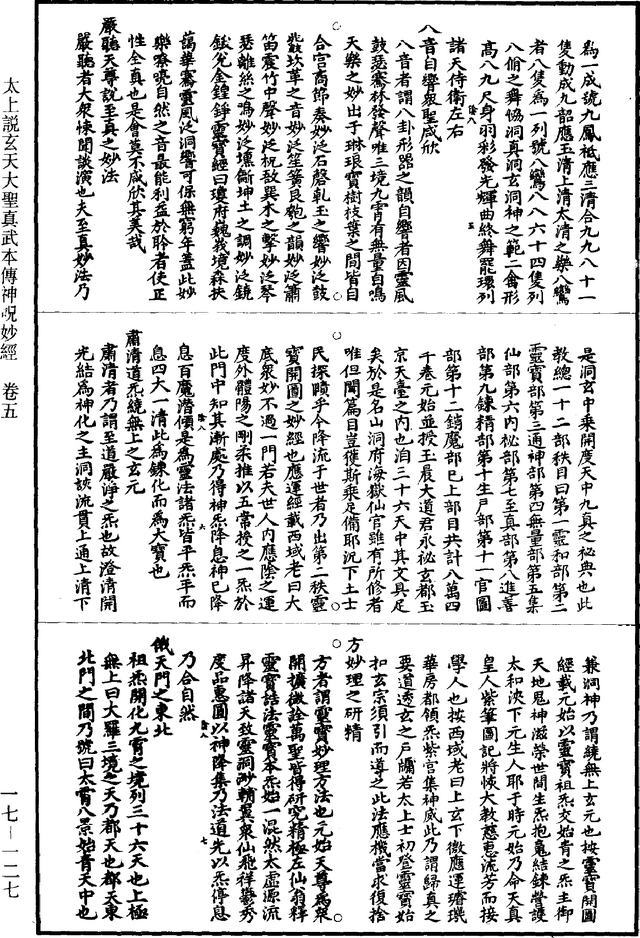 太上説玄天大聖真武本傳神呪妙經 卷五
一七—一二七
為一成號九鳳祗應三清合九九八十一
隻動成九韶應玉清上清太清之樂八鸞
者八隻為一列號八鸞八八六十四隻列
八佾之舞恊洞真洞玄洞神之範二禽形
髙八九尺身羽彩發光輝曲終舞罷環列
諸天侍衛左右
八音自響衆聖咸欣
八音者謂八卦形器之韻自響者因靈風
鼓瑟騫林發聲唯三境九霄有無量自鳴
天樂之妙出于琳琅寶樹枝葉之間皆自
合宫啇節奏妙泛石磬軋玉之響妙泛鼓
鼙坎革之音妙泛笙簧艮匏之韻妙泛簫
笛震竹中聲妙泛柷敔巽木之擊妙泛琴
瑟離絲之鳴妙泛壎斷坤土之調妙泛鏡
鈸兊金鍠錚靈寶經曰瓊府巍我境森扶
藹華騫靈風泛洞響可保無窮年蓋此妙
樂嘹喨自然之音最能利益於聆者使正
性全真也是會莫不咸欣其美哉
嚴聽天尊説至真之妙法
嚴聽者大衆悚聞談演也夫至真妙法乃
是洞玄中乘開度天中九真之祕典也此
教總一十二部秩目曰第一靈和部第二
靈寶部第三通神部第四無量部第五集
仙部第六内祕部第七至真部第八進善
部第九鍊精部第十生尸部第十一官圖
部第十二銷魔部已上部目共計八萬四
千卷元始並授玉晨大道君永祕玄都玉
京天臺之内也洎三十六天中其文具足
矣於是名山洞府海嶽仙官雖有所修者
唯但聞篇目豈獲斯乘足備耶況下土士
民探賾乎今降流于世者乃出第二秩靈
寶開圖之妙經也應運經載西域老曰大
底衆妙不過一門若夫世人内應陰之運
度外體陽之剛柔推以五常授之一炁於
此門中知其漸處乃得神炁降息神已降
息百魔潜傾是爲靈法諸炁皆平炁平而
息四大一清此爲鍊化而爲大寶也
肅清道炁繞無上之玄元
肅清者乃謂至道嚴淨之炁也故澄清開
光結為神化之主洞該流貫上通上清下
兼洞神乃謂繞無上玄元也按靈寶開圖
經載元始以靈寶祖炁交始青之炁主御
天地鬼神滋榮世間生炁抱䰟結鍊營護
太和泱下元生人耶于時元始乃命天真
皇人紫筆圖記將恢大教慈惠流芳而接
學人也按西域老曰上玄下微應運璿璣
華房都領炁紫宫集神威此乃謂歸真之
要道透玄之户牖若太上士初登靈寶始
扣玄宗須引而導之此法應機當求復捨
方妙理之研精
方者謂靈寶妙理方法也元始天尊爲衆
開擴微詮萬聖皆得研究精極左仙翁釋
靈寶誥法靈寶本炁始一混然太虚源流
昇降諸天致靈洞妙輔翼衆仙飛祥鬱秀
度品惠圓以神降集乃法道先以炁停息
乃合自然
俄天門之東北
祖炁開化九霄之境列三十六天也上極
無上曰大羅三境之天乃都天也都天東
北門之間乃號曰太霄八景始青天中也